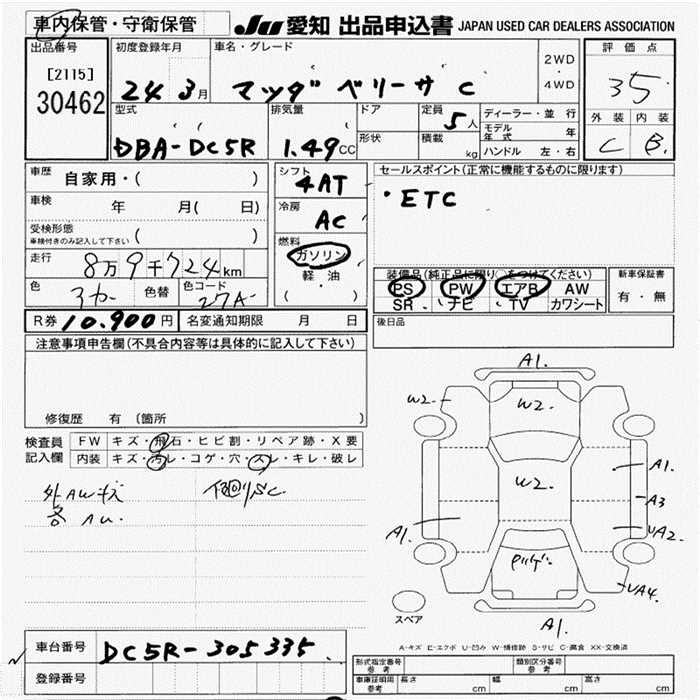 車内保管・守衛保管
JU 愛知 出品申込書 JAPAN USED CAR DEALERS ASSOCIATION
出品番号
[2115]
30462
初度登録年月
24 3月
車名・グレード
マツダ ベリーサ C
2WD
4WD
評価点
3.5
外装 内装
C B
型式
DBA-DC5R
排気量
1.49CC
ドア
形状
定員
5人
積載
kg
ディーラー・並行
モデル年式 年
ハンドル 左・右
車歴 自家用・( )
車検 年 月(日)
受検形態
車検付きのみ記入して下さい ( )
走行 8万9千724km
色 色替 色コード
27A
シフト
4AT
冷房
AC
燃料
ガソリン
軽・油
( )
セールスポイント(正常に機能するものに限ります)
・ETC
装備品(純正品に限り○をつけてください)
PS PW エアB AW
SR ナビ TV カワシート
新車保証書
有・無
R券 10,900円 名変通知期限 月 日
後日品
注意事項申告欄(不具合内容等は具体的に記入して下さい)
修復歴 有 (箇所 )
検査員
記入欄
FW キズ・飛石・ヒビ割・リペア跡・X要
内装 キズ・汚レ・コゲ・穴・スレ・キレ・破レ
外AWキズ
各AU.
下回りSC
A1.
W2.
W2.
W2.
A1.
A3
UA2.
A1.
UA4.
A1.
スペア
A-キズ E-エクボ U-凹み W-補修跡 S-サビ C-腐食 XX-交換済
車台番号 DC5R-305335
登録番号
形式指定番号 参考
類別区分番号 参考
車庫証明用 参考 長さ cm 幅 cm 高さ cm